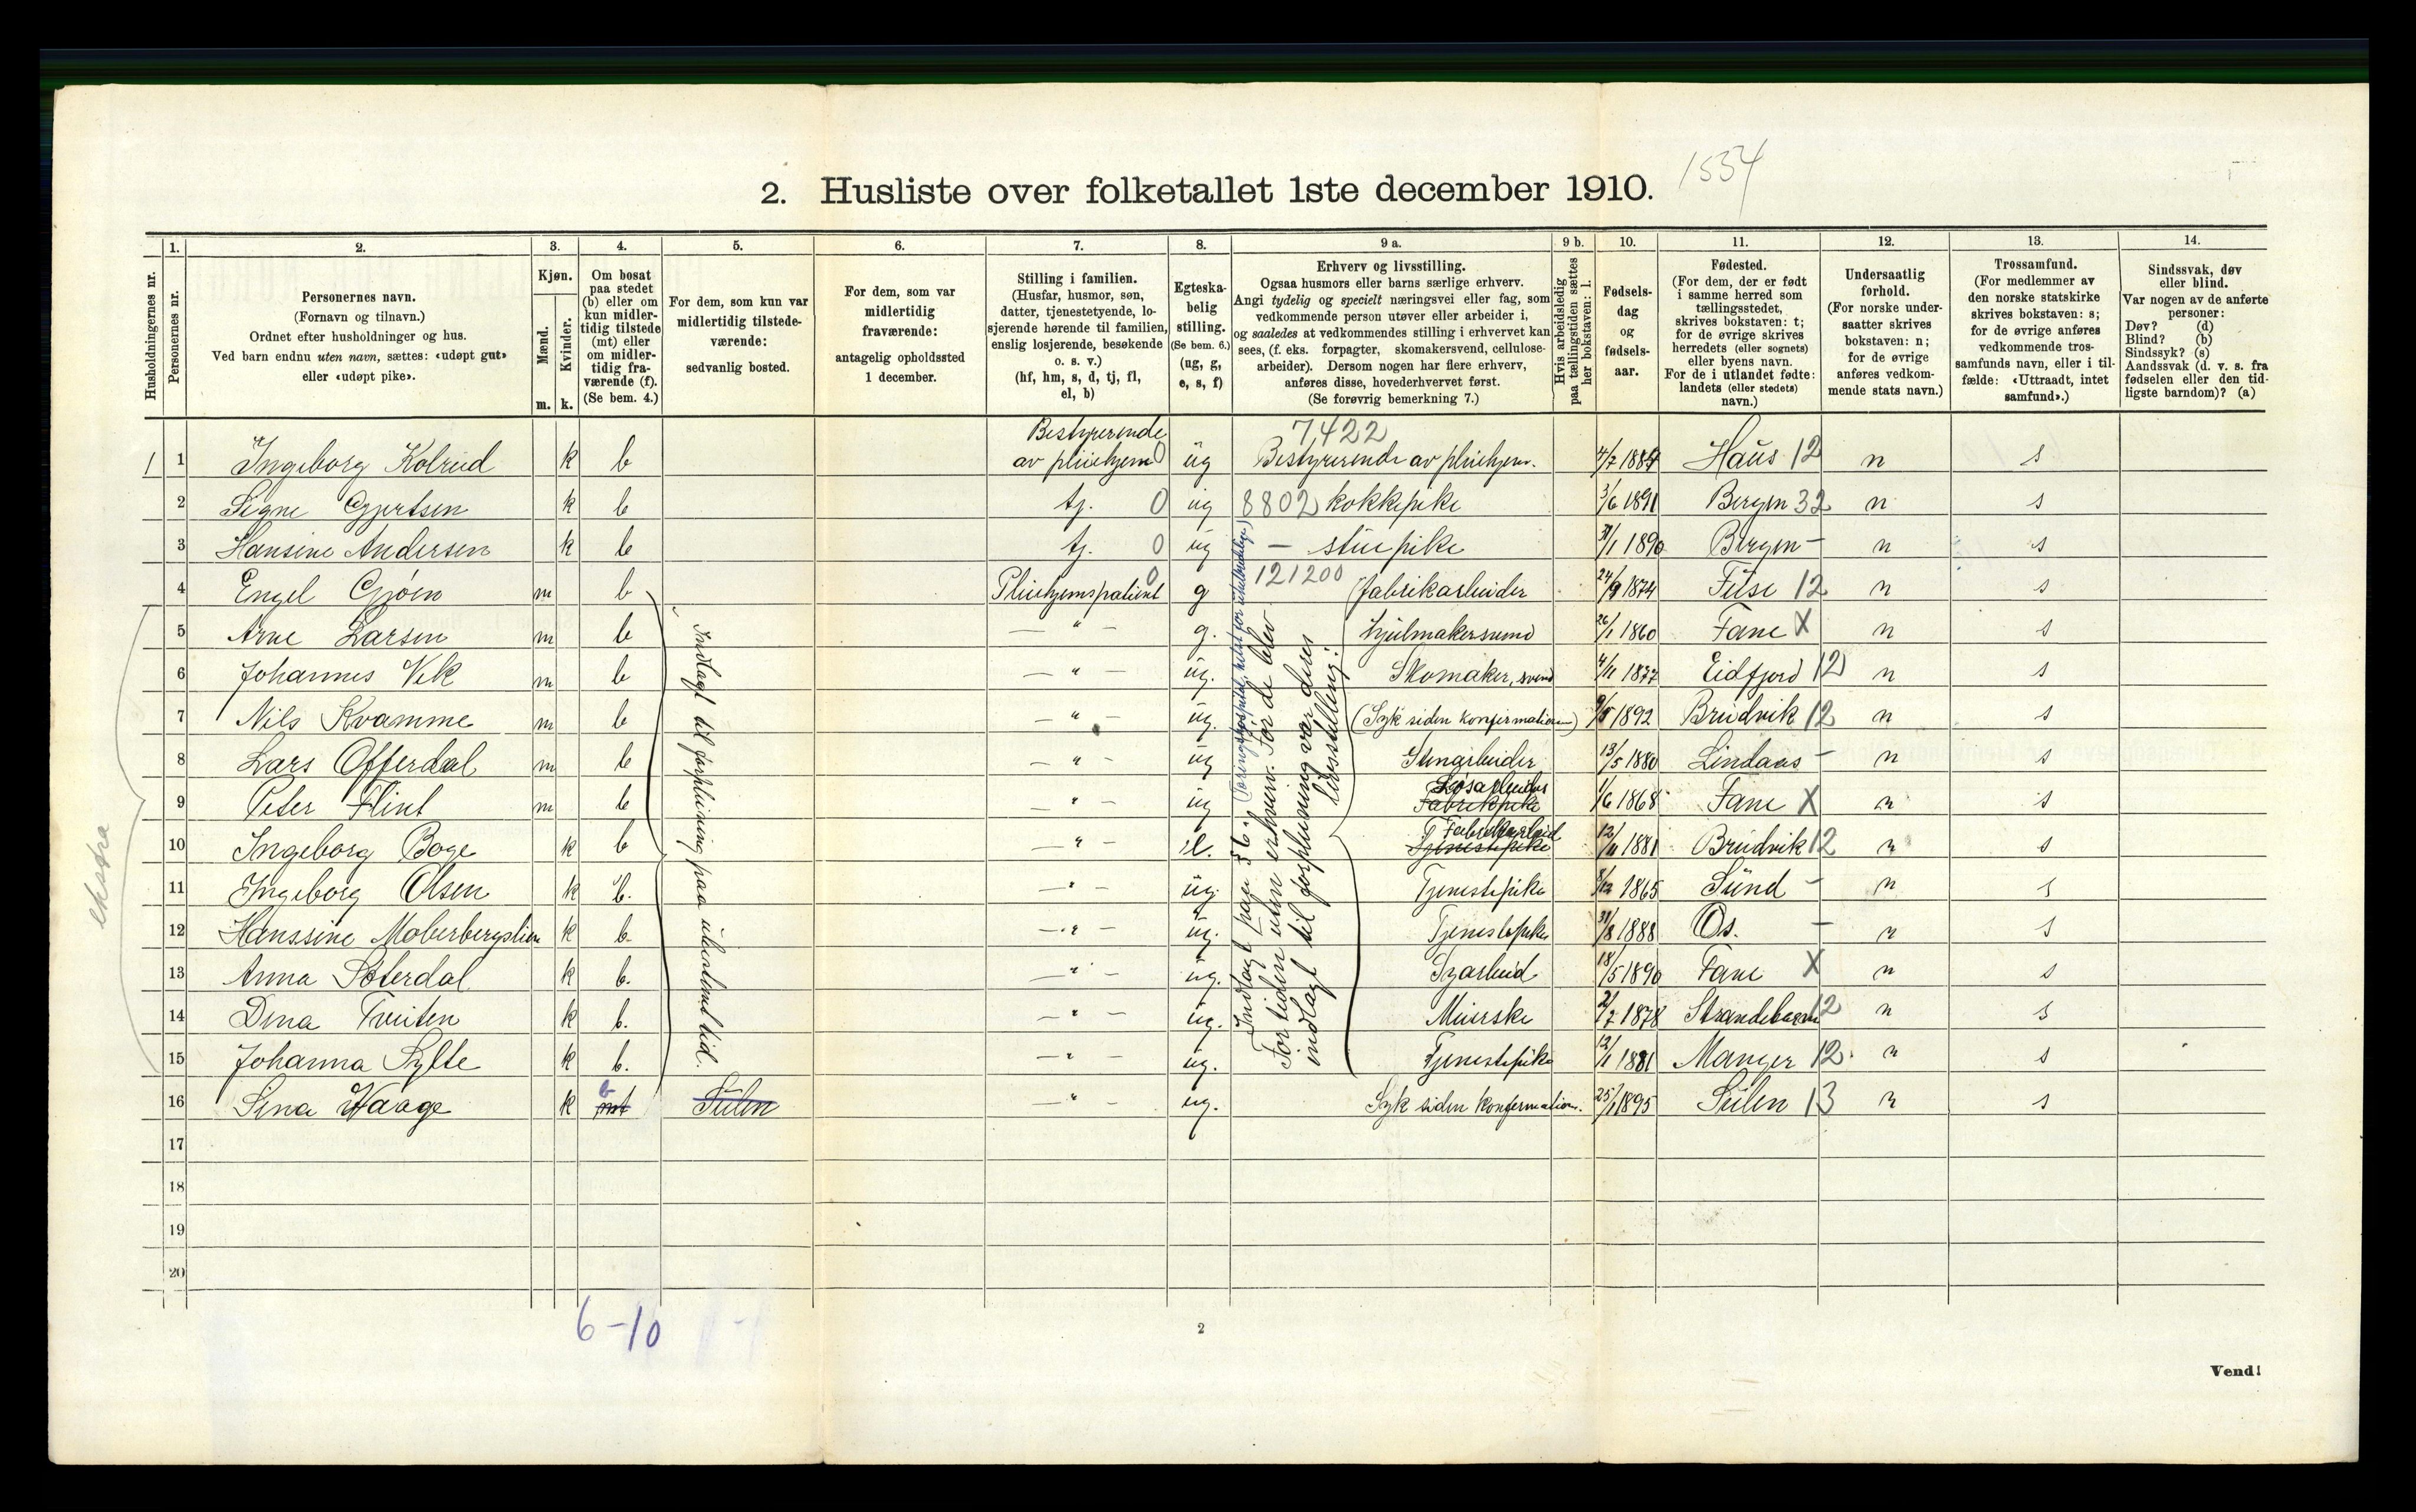 1534
2. Husliste over folketallet 1ste december 1910.
Husholdningernes nr.
1.
Personernes nr.
2.
Personernes navn.
(Fornavn og tilnavn.)
Ordnet efter husholdninger og hus.
Ved barn endnu uten navn, sættes: «udøpt gut»
eller «udøpt pike».
3.
Kjøn.
Mænd.
Kvinder.
m. k.
4.
Om bosat
paa stedet
(b) eller om
kun midler-
tidig tilstede
(mt) eller
om midler-
tidig fra-
værende (f).
(Se bem. 4.)
5.
For dem, som kun var
midlertidig tilstede-
værende:
sedvanlig bosted.
6.
For dem, som var
midlertidig
fraværende:
antagelig opholdssted
1 december.
7.
Stilling i familien.
(Husfar, husmor, søn,
datter, tjenestetyende, lo-
sjerende hørende til familien,
enslig losjerende, besøkende
o. s. v.)
(hf, hm, s, d, tj, fl,
el, b)
8.
Egteska-
belig
stilling.
(Se bem. 6.)
(ug, g,
e, s, f)
9 a.
Erhverv og livsstilling.
Ogsaa husmors eller barns særlige erhverv.
Angi tydelig og specielt næringsvei eller fag, som
vedkommende person utøver eller arbeider i,
og saaledes at vedkommendes stilling i erhvervet kan
sees, (f. eks. forpagter, skomakersvend, cellulose-
arbeider). Dersom nogen har flere erhverv,
anføres disse, hovederhvervet først.
(Se forøvrig bemerkning 7.)
9 b.
Hvis arbeidsledig
paa tællingstiden sættes
her bokstaven: l.
10.
Fødsels-
dag
og
fødsels-
aar.
11.
Fødested.
(For dem, der er født
i samme herred som
tællingsstedet,
skrives bokstaven: t;
for de øvrige skrives
herredets (eller sognets)
eller byens navn.
For de i utlandet fødte:
landets (eller stedets)
navn.)
12.
Undersaatlig
forhold.
(For norske under-
saatter skrives
bokstaven: n;
for de øvrige
anføres vedkom-
mende stats navn.)
13.
Trossamfund.
(For medlemmer av
den norske statskirke
skrives bokstaven: s;
for de øvrige anføres
vedkommende tros-
samfunds navn, eller i til-
fælde: «Uttraadt, intet
samfund».)
14.
Sindssvak, døv
eller blind.
Var nogen av de anførte
personer:
Døv? (d)
Blind? (b)
Sindssyk? (s)
Aandssvak (d. v. s. fra
fødselen eller den tid-
ligste barndom)? (a)
Bestyrerende 7422
1 1 Ingeborg Kolrud k b av pleiehjem 0 ug Bestyrerende av pleiehjem. 4/7 1884 Haus 12 n s
2 Signe Gjertsen k b tj. 0 ug 8802 kokkepike 3/6 1891 Bergen 32 n s
3 Hansine Andersen k b tj. 0 ug — stuepike 31/1 1890 Bergen – n s
4 Engel Gjøen m b Pleiehjemspatient 0 g 121200 Fabrikarbeider 24/9 1874 Fuse 12 n s
5 Arne Larsen m b — " — g. Hjulmakersvend 26/1 1860 Fane X n s
6 Johannes Vik m b — " — ug. Skomaker, svend 4/11 1877 Eidfjord 12 n s
7 Nils Kvamme m b — " — ug. (Syk siden konfirmationen) 1892 Bruvik 12 n s
8 Lars Offerdal m b — " — ug Stenarbeider 13/5 1880 Lindaas – n s
Løsarbeider
9 Peter Flint m b — " — ug Fabrikpike 1/6 1868 Fane X n s
Fabrikarbeid
10 Ingeborg Boge k b — " — Tjenestepike 12/11 1881 Bruvik 12 n s
11 Ingeborg Olsen k b. — " — ug. Tjenestepike 1865 Sund – n s
12 Hanssine Moberbergslien k b. — " — ug. Tjenestepike 31/8 1888 Os. – n s
13 Anna Sæterdal k b. — " — ug. Syarbeid 18/5 1890 Fane X n s
14 Dina Tveiten k b. — " — ug. Meierske 2/7 1878 Strandebarm 12 n s
15 Johanna Sylte k b. — " — ug. Tjenestepike 12/1 1881 Manger 12 n s
16 Sina Haage k b mt Sulen — " — ug. Syk siden konfermation. 25/1 1895 Sulen 13 n s
17
18
19
20
ekstra
Indlagt til forpleining paa ubestemt tid.
Indlagt paa
For tiden uten erhverv. Før de blev
indlagt til forpleining var deres
livsstilling:
6–10
2
Vend!